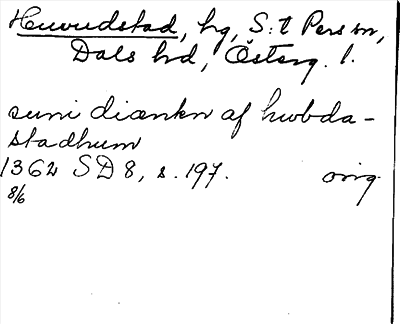 Huvudstad, hg, S:t Pers sn,
Dals hd, Österg. l.
suni diænkn af hwbda-
stadhum
1362 SD 8, s. 197. orig
8/6